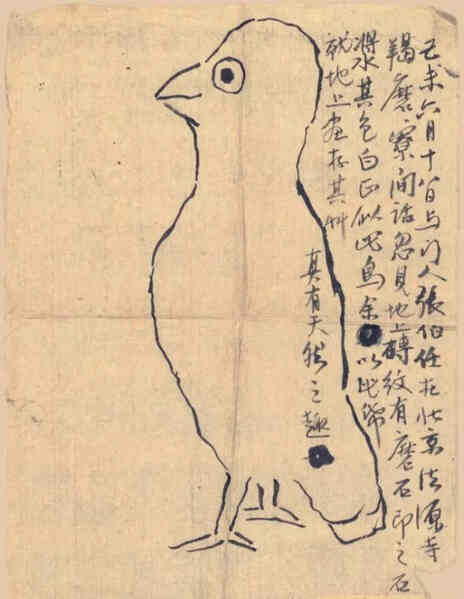 己未六月十八日与门人張伯任在北京法源寺
羯磨寮间話忽見地上磚紋有磨石印之石
漿其色白正似此鳥余以此紙
就地上画存其艸
真有天然之趣